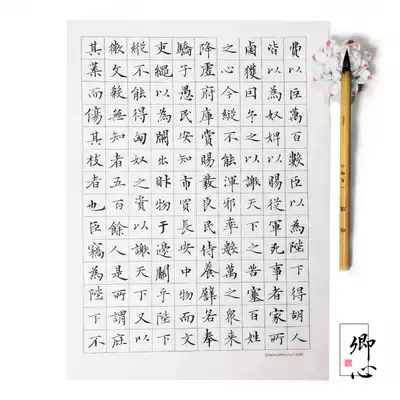 費以巨萬百數臣以為陛下得胡人
皆以為奴婢以賜從軍死事者家所
鹵獲因予之以謝天下之苦塞百姓
之心今縱不能渾邪率數萬之眾來
降虛府庫賞賜發良民侍養譬若奉
驕子愚民安知市買長安中物而文
吏繩以為闌出財物于邊關乎陛下
縱不能得匈奴之資以謝天下又以
微文殺無知者五百餘人是所謂庇
其葉而傷其枝者也臣竊為陛下不
卿心